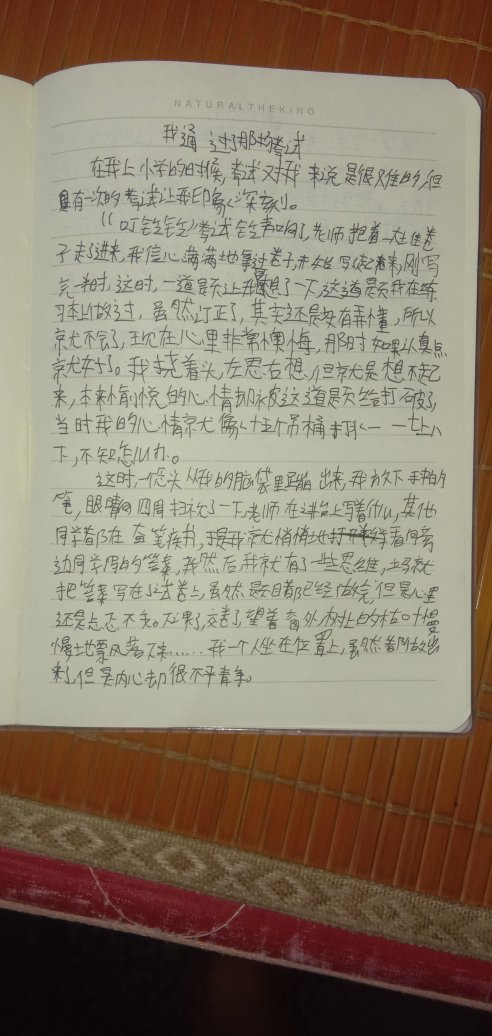 NATURALTHEKING
我通过了那场考试
在我上小学的时候,考试对我来说是很难的,但
是有一次的考试让我印象深刻。
“叮铃铃”考试铃声响了,老师抱着一大堆卷
子走了进来,我信心满满地拿过卷子,开始写了起来,刚写
完一半时,这时,一道题让我想了一下,这道题我在练
习本上做过,虽然订正了,其实还是没有弄懂,所以
就不会了,现在心里非常懊悔,那时如果认真点
就好了。我挠着头,左思右想,但就是想不起
来,本来愉悦的心情却被这道题给打破了,
当时我的心情就像十五个吊桶打水——七上八
下,不知怎么办。
这时,一个念头从我的脑袋里蹦出来,我放下手中的
笔,眼睛向四周扫视了一下,老师在讲台上写着什么,其他
同学都在奋笔疾书,于是我就悄悄地看向旁
边同学的答案,然后我就有了一些思维,立马就
把答案写在了试卷上,虽然题目都已经做完,但是心里
还是忐忑不安。下课了,交卷了,望着窗外,树上的枯叶慢
慢地飘落下来……我一个人坐在位置上,虽然都做出
来了,但是内心却很不平静。